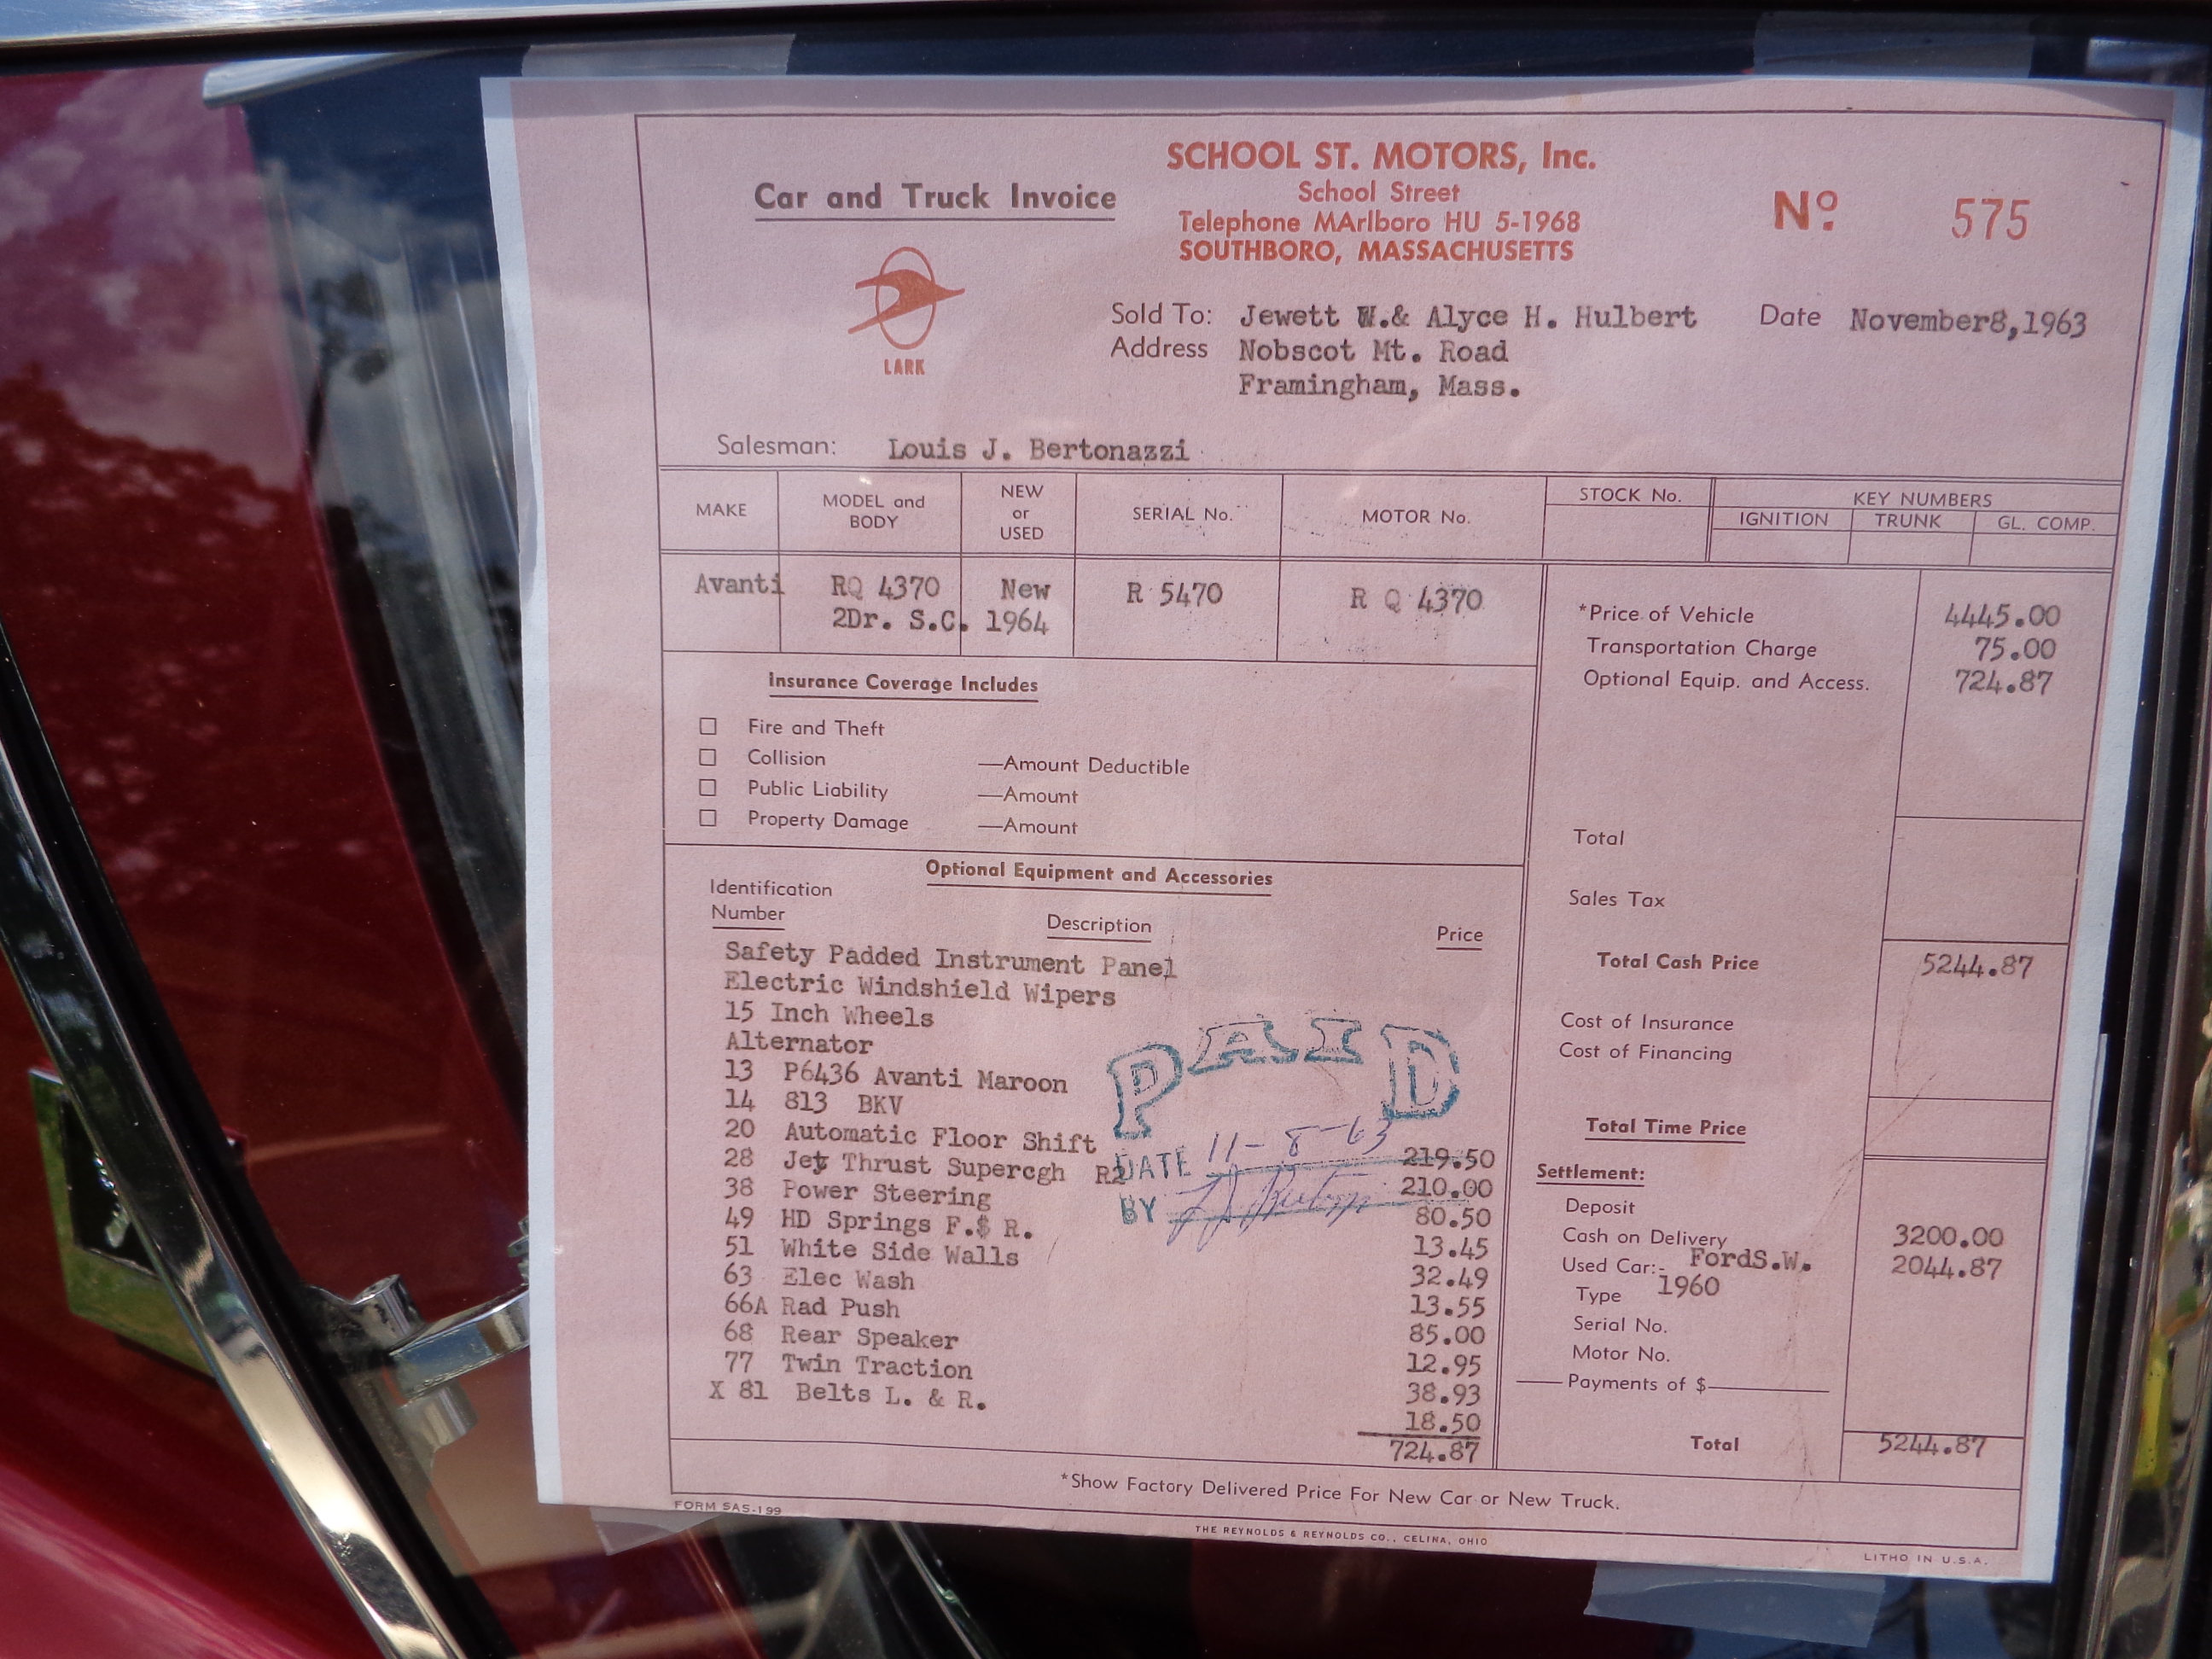 SCHOOL ST. MOTORS, Inc.
School Street
Telephone MArlboro HU 5-1968
SOUTHBORO, MASSACHUSETTS
Car and Truck Invoice
Nº 575
LARK
Sold To: Jewett W.& Alyce H. Hulbert
Date November8,1963
Address Nobscot Mt. Road
Framingham, Mass.
Salesman: Louis J. Bertonazzi
MAKE MODEL and BODY NEW or USED SERIAL No. MOTOR No. STOCK No. KEY NUMBERS
IGNITION TRUNK GL. COMP.
Avanti RQ 4370 New R 5470 R Q 4370
2Dr. S.C. 1964
*Price of Vehicle 4445.00
Transportation Charge 75.00
Optional Equip. and Access. 724.87
Insurance Coverage Includes
Fire and Theft
Collision —Amount Deductible
Public Liability —Amount
Property Damage —Amount
Total
Sales Tax
Total Cash Price 5244.87
Cost of Insurance
Cost of Financing
Total Time Price
Optional Equipment and Accessories
Identification Number Description Price
Safety Padded Instrument Panel
Electric Windshield Wipers
15 Inch Wheels
Alternator
13 P6436 Avanti Maroon
14 813 BKV
20 Automatic Floor Shift
28 Jet Thrust Supercgh R2
38 Power Steering
49 HD Springs F.$ R.
51 White Side Walls
63 Elec Wash
66A Rad Push
68 Rear Speaker
77 Twin Traction
X 81 Belts L. & R.
219.50
210.00
80.50
13.45
32.49
13.55
85.00
12.95
38.93
18.50
724.87
PAID
DATE 11-8-63
BY
Settlement:
Deposit
Cash on Delivery 3200.00
Used Car:- FordS.W. 2044.87
Type 1960
Serial No.
Motor No.
Payments of $
Total 5244.87
*Show Factory Delivered Price For New Car or New Truck.
FORM SAS-199
THE REYNOLDS & REYNOLDS CO., CELINA, OHIO
LITHO IN U.S.A.